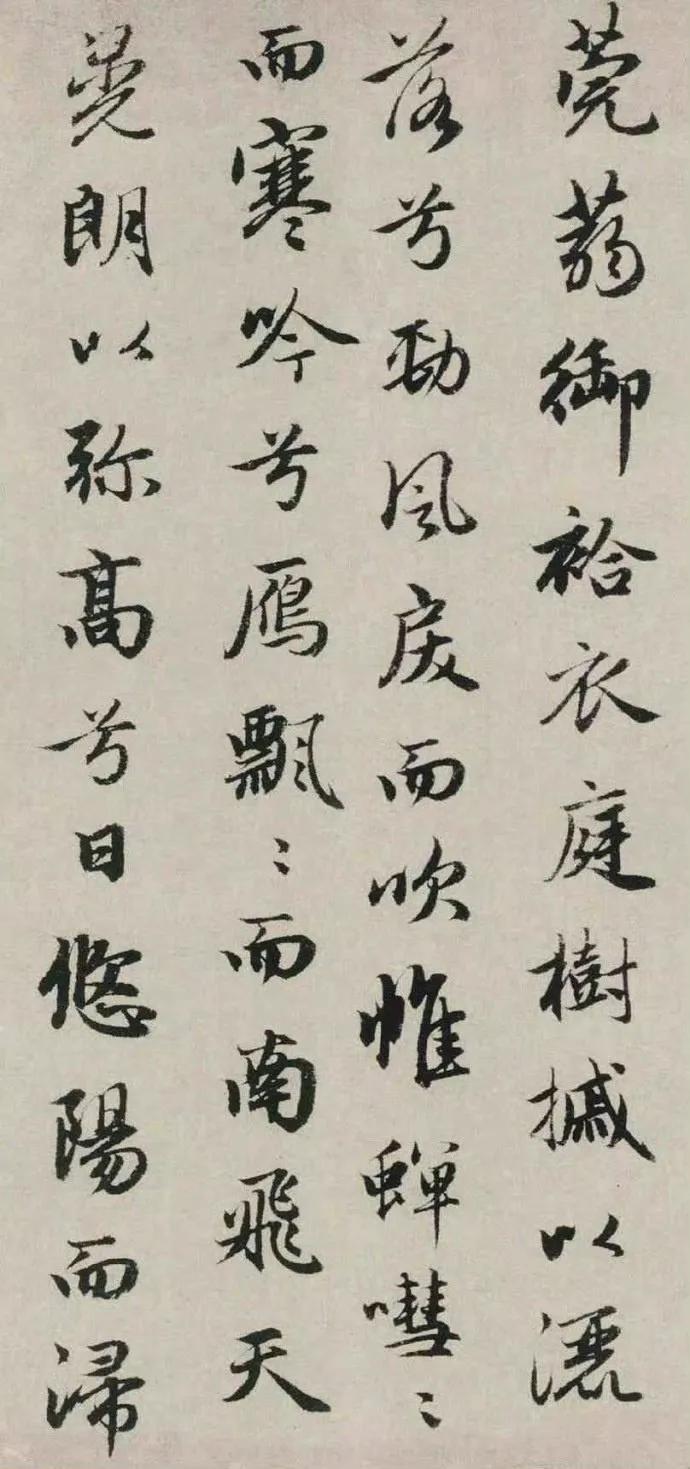 莞蒻御袷衣庭樹摵以灑
落兮勁風戾而吹帷蟬嘒〻
而寒吟兮鴈飄〻而南飛天
晃朗以弥高兮日悠陽而㵗